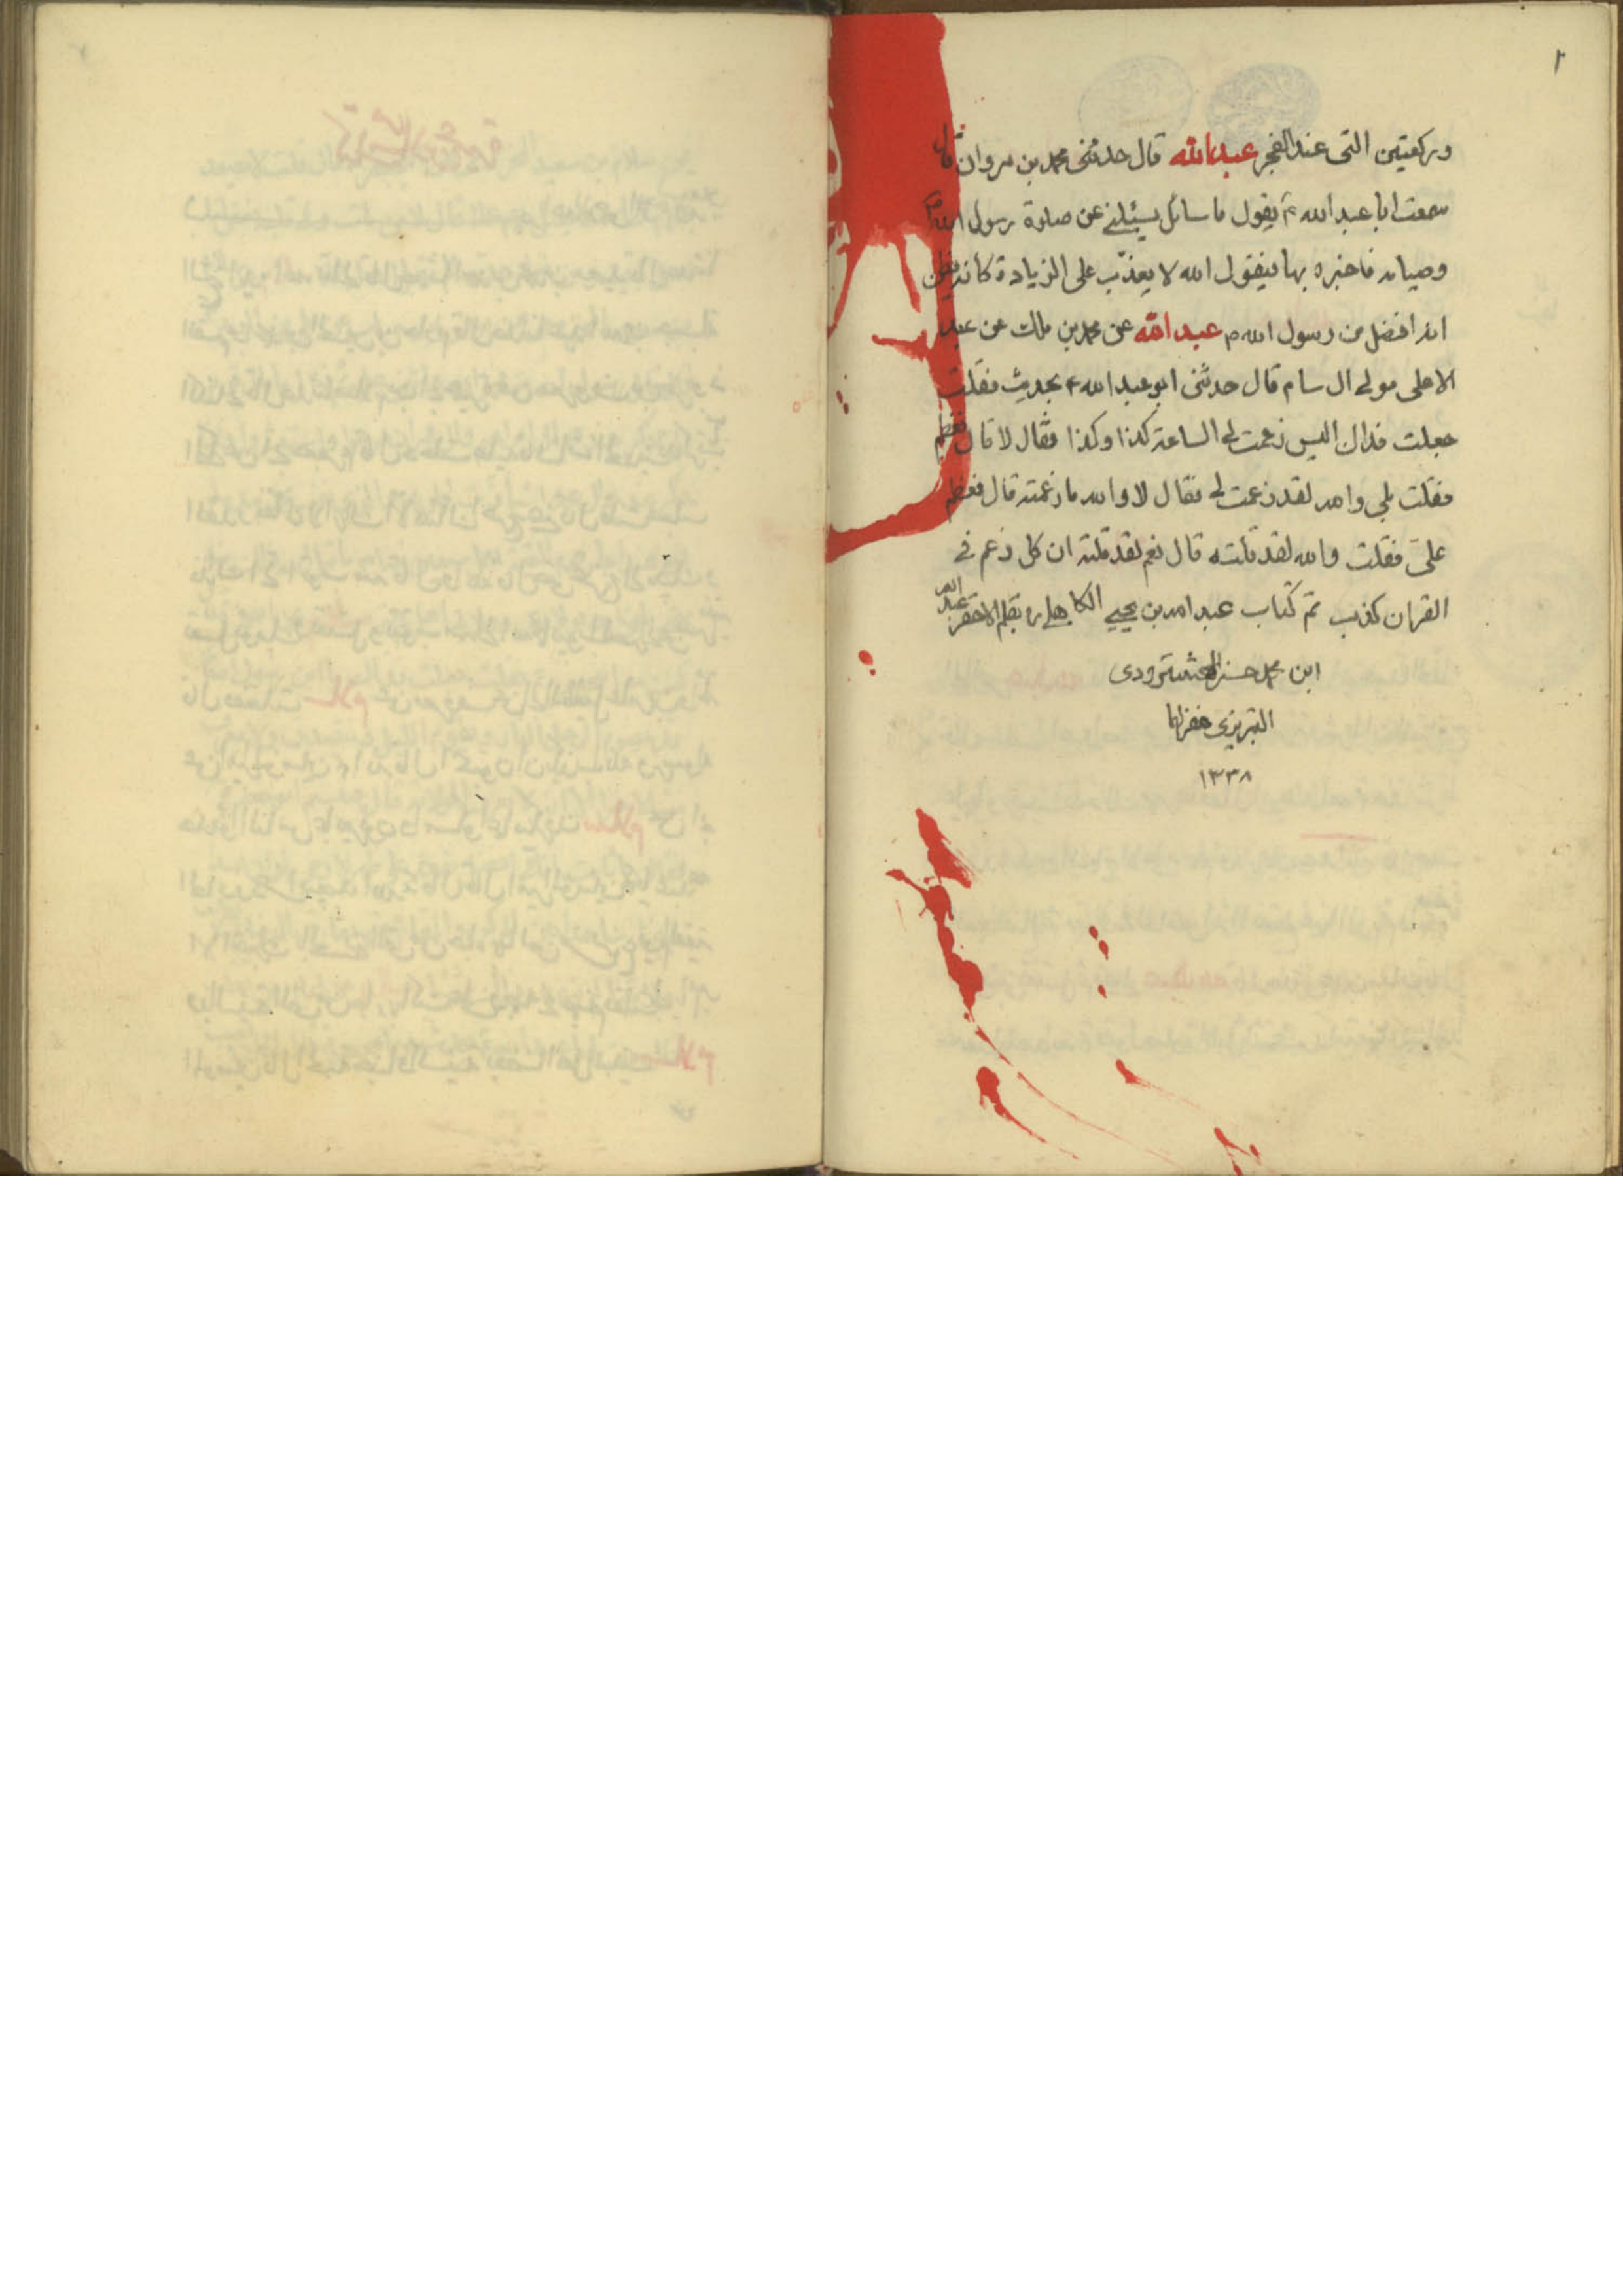 ٢
وركعتين التى عند الفجر عبدالله قال حدثنى محمد بن مروان قال
سمعت ابا عبد الله ع يقول ما سائل يسئلنى عن صلوة رسول الله ص
وصيامه فاخبره بها فيقول الله لا يعذب على الزيادة كانه يظن
انه افضل من رسول الله ص عبد الله عن محمد بن مالك عن عبد
الاعلى مولى ال سام قال حدثنى ابو عبد الله ع بحديث فقلت
جعلت فداك اليس زعمت لى الساعة كذا وكذا فقال لا قال فعظم
فقلت بلى والله لقد زعمت لى فقال لا والله ما زعمته قال فعظم
على فقلت والله لقد قلته قال نعم لقد قلته ان كل زعم فى
القران كذب تم كتاب عبد الله بن يحيى الكاهلى ره بقلم الاحقر عبد الله
ابن محمد حسن الهشترودى
التبريزى غفر لهما
١٣٣٨